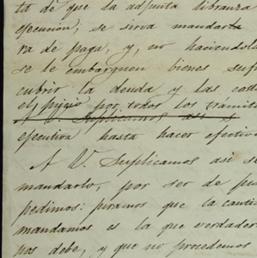 ta de que la adjunta libranza
ejecución, se sirva mandar
ra de pago, y, no haciendolo
se le embarguen bienes suf
cubrir la deuda y las cost
el juicio por todos los tramit
A V. Suplicamos así s
ejecutiva hasta hacer efectiv
A V. Suplicamos así se
mandarlo, por ser de jus
pedimos: juramos que la canti
mandamos es la que verdader
nos debe, y que no procedemos